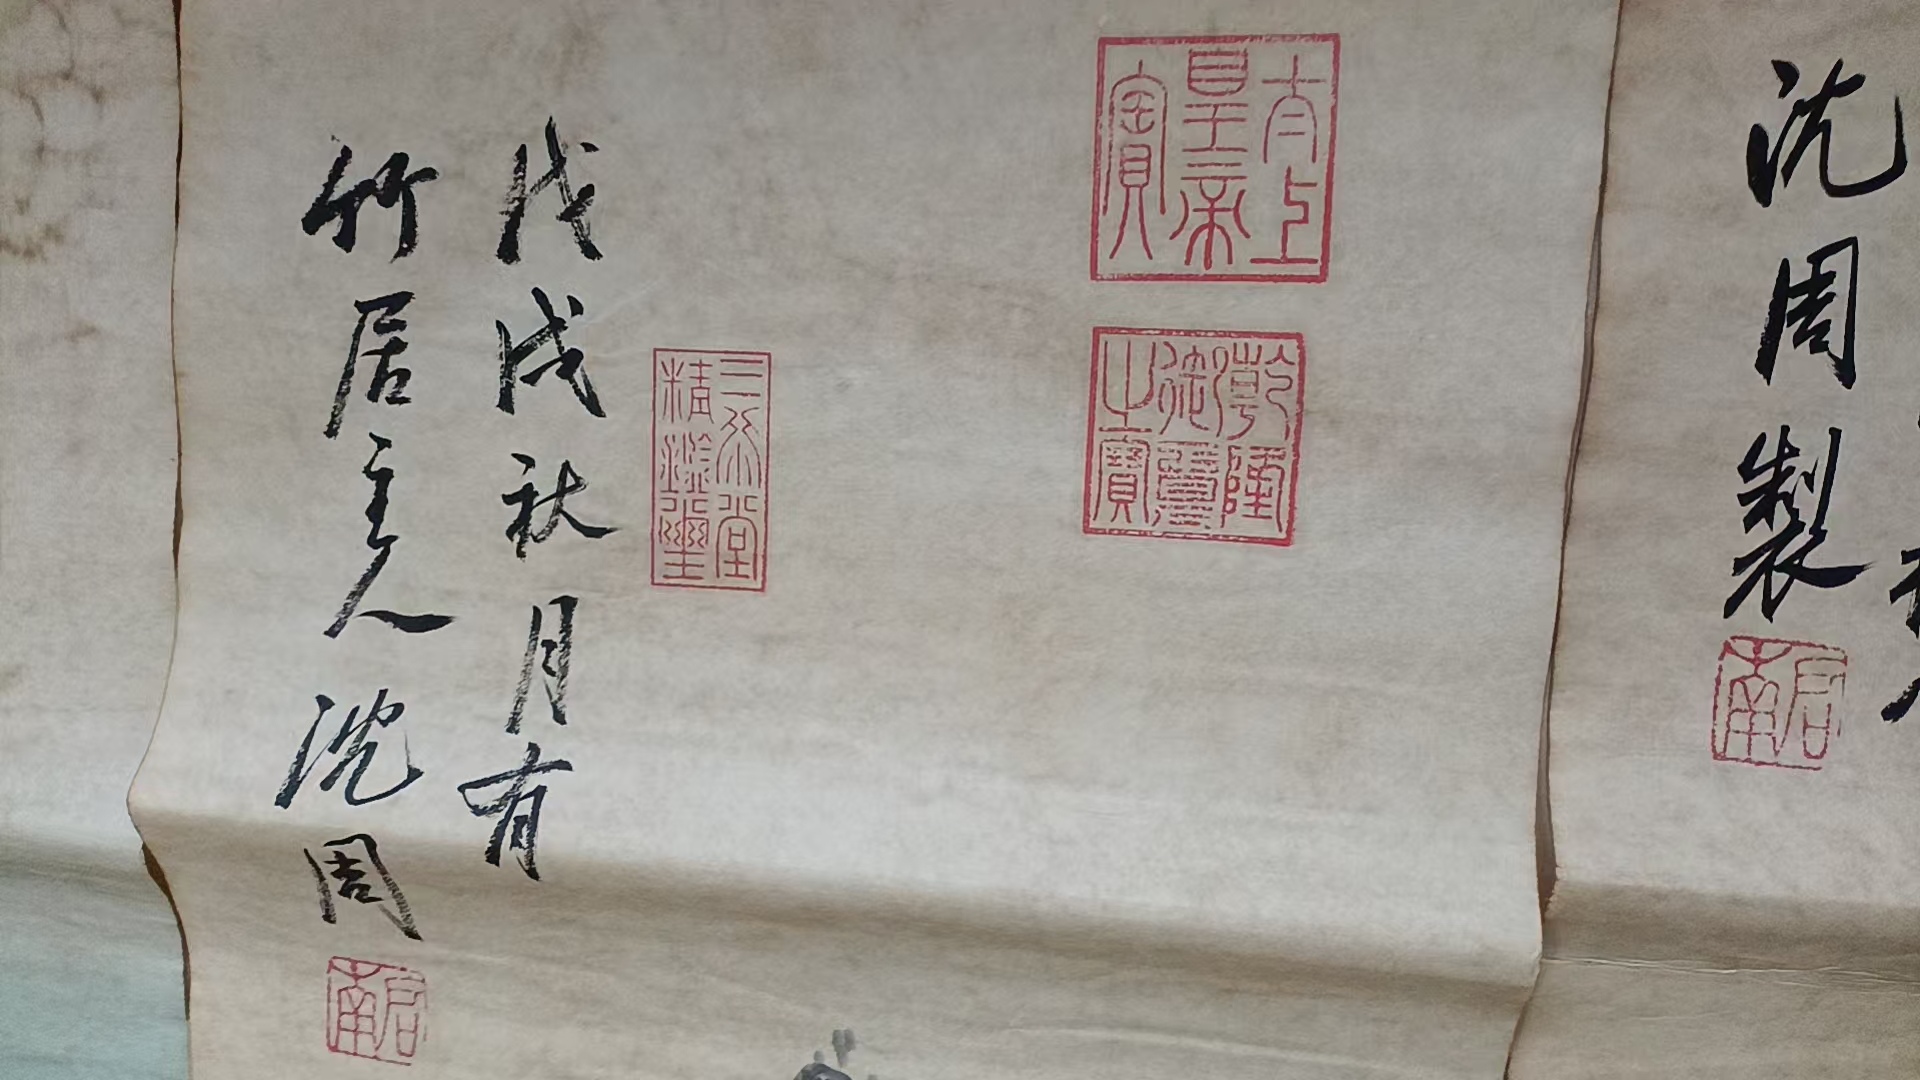 戊戌秋月有
竹居主人沈周
啟南
三希堂
精鑑璽
太上
皇帝
寶
乾隆
御覽
之寶
沈周製
啟南